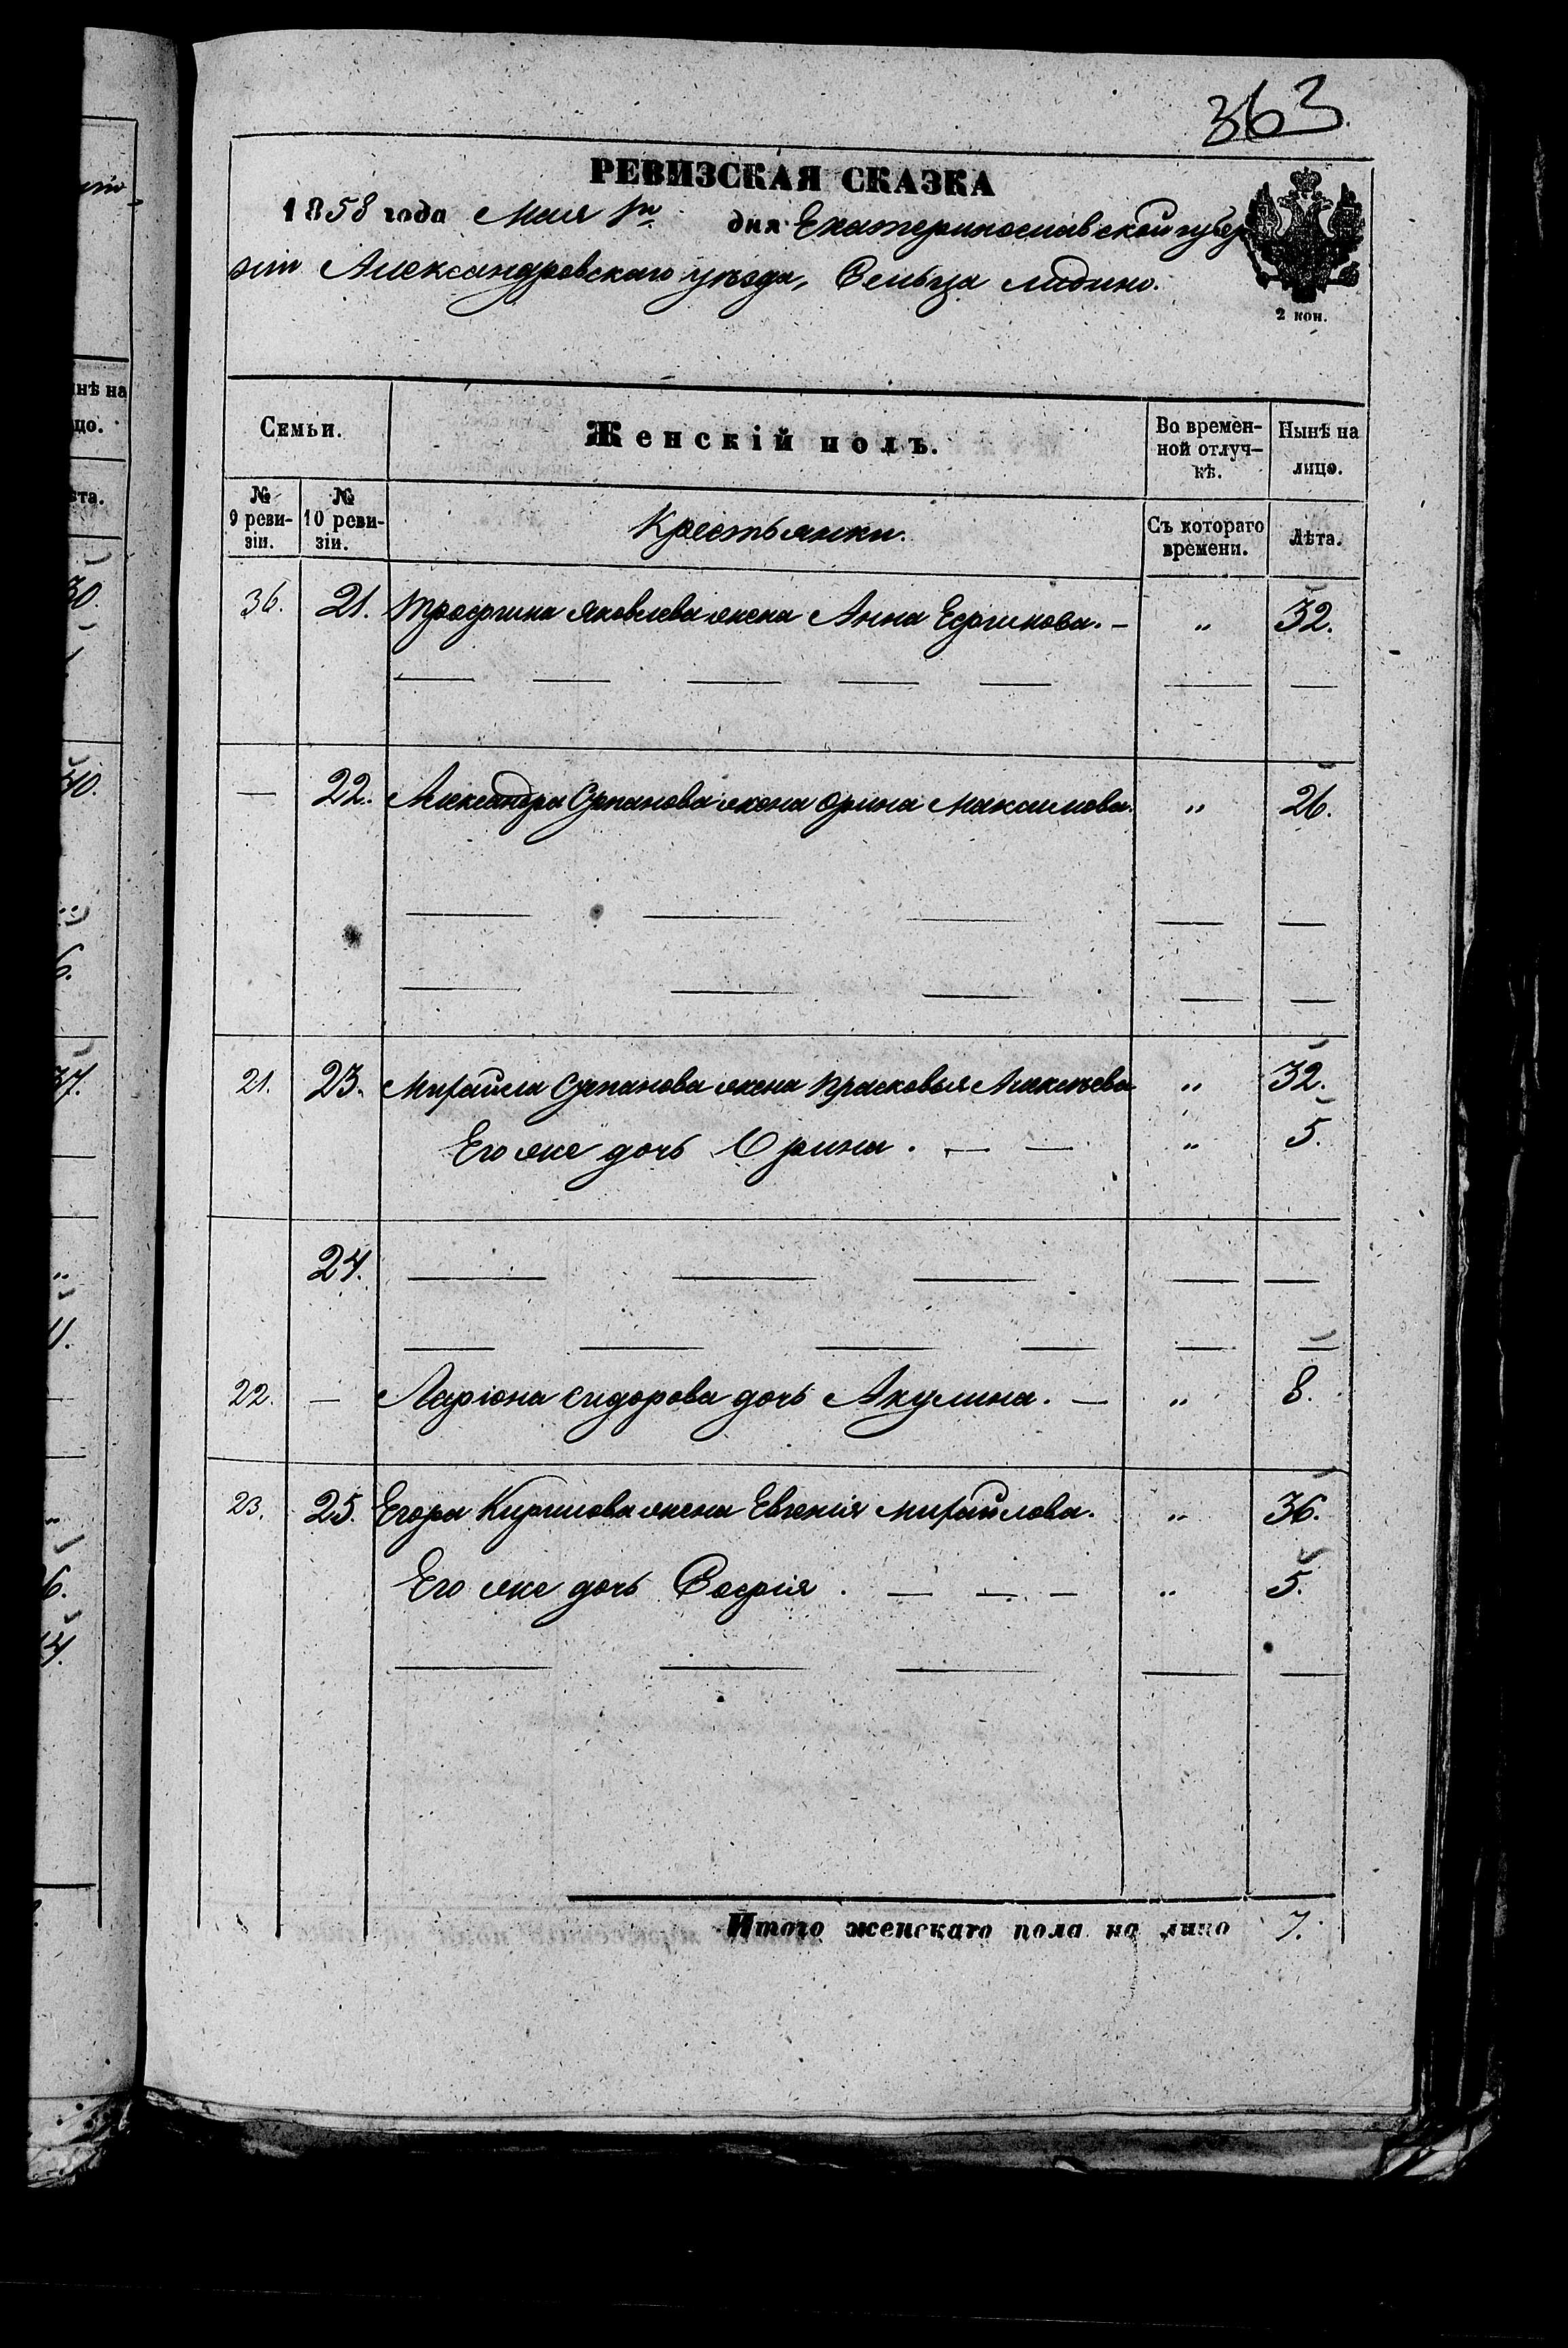 363.
РЕВИЗСКАЯ СКАЗКА
1858 года Мая 1го дня Екатеринославской губер
нии Александровскаго уѣзда, Сельца Лидино.
2 коп.
Семьи.
Женскій полъ.
Во времен-
ной отлуч-
кѣ.
Нынѣ на
лицо.
№
9 реви-
зіи.
№
10 реви-
зіи.
Крестьянки.
Съ котораго
времени.
Лѣта.
36. 21. Трофима Яковлева жена Анна Ефимова. — „ 32.
— 22. Александра Степанова жена Орина Максимова. „ 26.
21. 23. Михайла Степанова жена Прасковья Алексѣева „ 32.
Его же дочь Орина. — — „ 5.
24.
22. — Ларіона Сидорова дочь Акулина. — „ 8.
23. 25. Егора Кирилова жена Евгенія Михайлова. „ 36.
Его же дочь Софія. — — — „ 5.
Итого женскаго пола на лицо 7.
нѣ на
цо.
ѣта.
30.
40.
6.
37.
„
11.
6.
14.